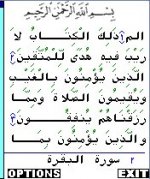 بسم الله الرحمن الرحيم
الم ۝١ ذَٰلِكَ الْكِتَابُ لَا
رَيْبَ فِيهِ هُدًى لِلْمُتَّقِينَ ۝٢
الَّذِينَ يُؤْمِنُونَ بِالْغَيْبِ
وَيُقِيمُونَ الصَّلَاةَ وَمِمَّا
رَزَقْنَاهُمْ يُنفِقُونَ ۝٣
وَالَّذِينَ يُؤْمِنُونَ بِمَا
٢ سورة البقرة
OPTIONS EXIT